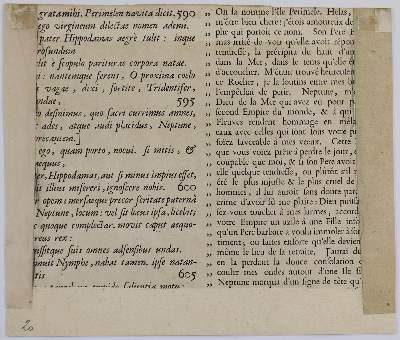 gratambi, Perimelen navita dicit. 590
ego virgineum dilectæ nomen ademi.
pater Hippodamas ægrè tulit: inque
profundum
è scopulo periturae corpora natae.
nantemque ferens, O proxima coelo
vagae, dixi, sortite, Tridentifer,
undae, 595
definimus, quo sacri currimus amnes,
ades, atque audi placidus, Neptune,
precantem.]
ego, quam porto, nocui. si mitis, &
aequus,
Hippodamas, aut si minus impius esset,
illius misereri, ignoscere nobis. 600
opem: mersaeque precor feritate paterna
Neptune, locum: vel sit locus ipsa, licebit,
quoque complectar. movit caput aequo-
reus rex:
suis omnes adsensibus undas.
Nymphe, nabat tamen. ipse natan-
tis 605
„ On la nomme l'Ile Perimele. Helas,
„ m'étre bien chere! j'étois amoureux de
„ phe qui portoit ce nom. Son Pere
„ mas irrité de voir qu'elle avoit répon
„ tendresse, la précipita du haut d'un
„ dans la Mer, dans le tems qu'elle ét
„ d'accoucher. M'étant trouvé heureusem
„ ce Rocher, je la soutins entre mes b
„ l'empéchai de perir. Neptune,
„ Dieu de la Mer qui avez eu pour p
„ second Empire du monde, & à qui
„ Fleuves rendent hommage en méla
„ eaux avec celles qui sont sous votre pu
„ soiez favorable à mes veux. Cette
„ que vous voiez prête à perdre le jour,
„ coupable que moi, & si son Pere avoit
„ elle quelque tendresse, ou plutôt s'il
„ été le plus injuste & le plus cruel de
„ hommes, il lui auroit sans doute par
„ crime d'avoir sû me plaire: Dieu puissa
„ sez-vous toucher à mes larmes, accord
„ votre Empire un azile à une Fille
„ qu'un Pere barbare a voulu immoler à so
„ timent; ou faites ensorte qu'elle devien
„ même le lieu de sa retraite. J'aurai du
„ en la perdant la douce consolation
„ couler mes ondes autour d'une Ile si
„ Neptune marqua d'un signe de tête qu'